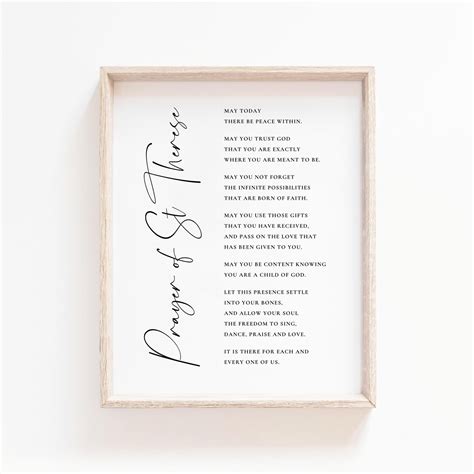 Prayer of St Therese
MAY TODAY
THERE BE PEACE WITHIN.
MAY YOU TRUST GOD
THAT YOU ARE EXACTLY
WHERE YOU ARE MEANT TO BE.
MAY YOU NOT FORGET
THE INFINITE POSSIBILITIES
THAT ARE BORN OF FAITH.
MAY YOU USE THOSE GIFTS
THAT YOU HAVE RECEIVED,
AND PASS ON THE LOVE THAT
HAS BEEN GIVEN TO YOU.
MAY YOU BE CONTENT KNOWING
YOU ARE A CHILD OF GOD.
LET THIS PRESENCE SETTLE
INTO YOUR BONES,
AND ALLOW YOUR SOUL
THE FREEDOM TO SING,
DANCE, PRAISE AND LOVE.
IT IS THERE FOR EACH AND
EVERY ONE OF US.